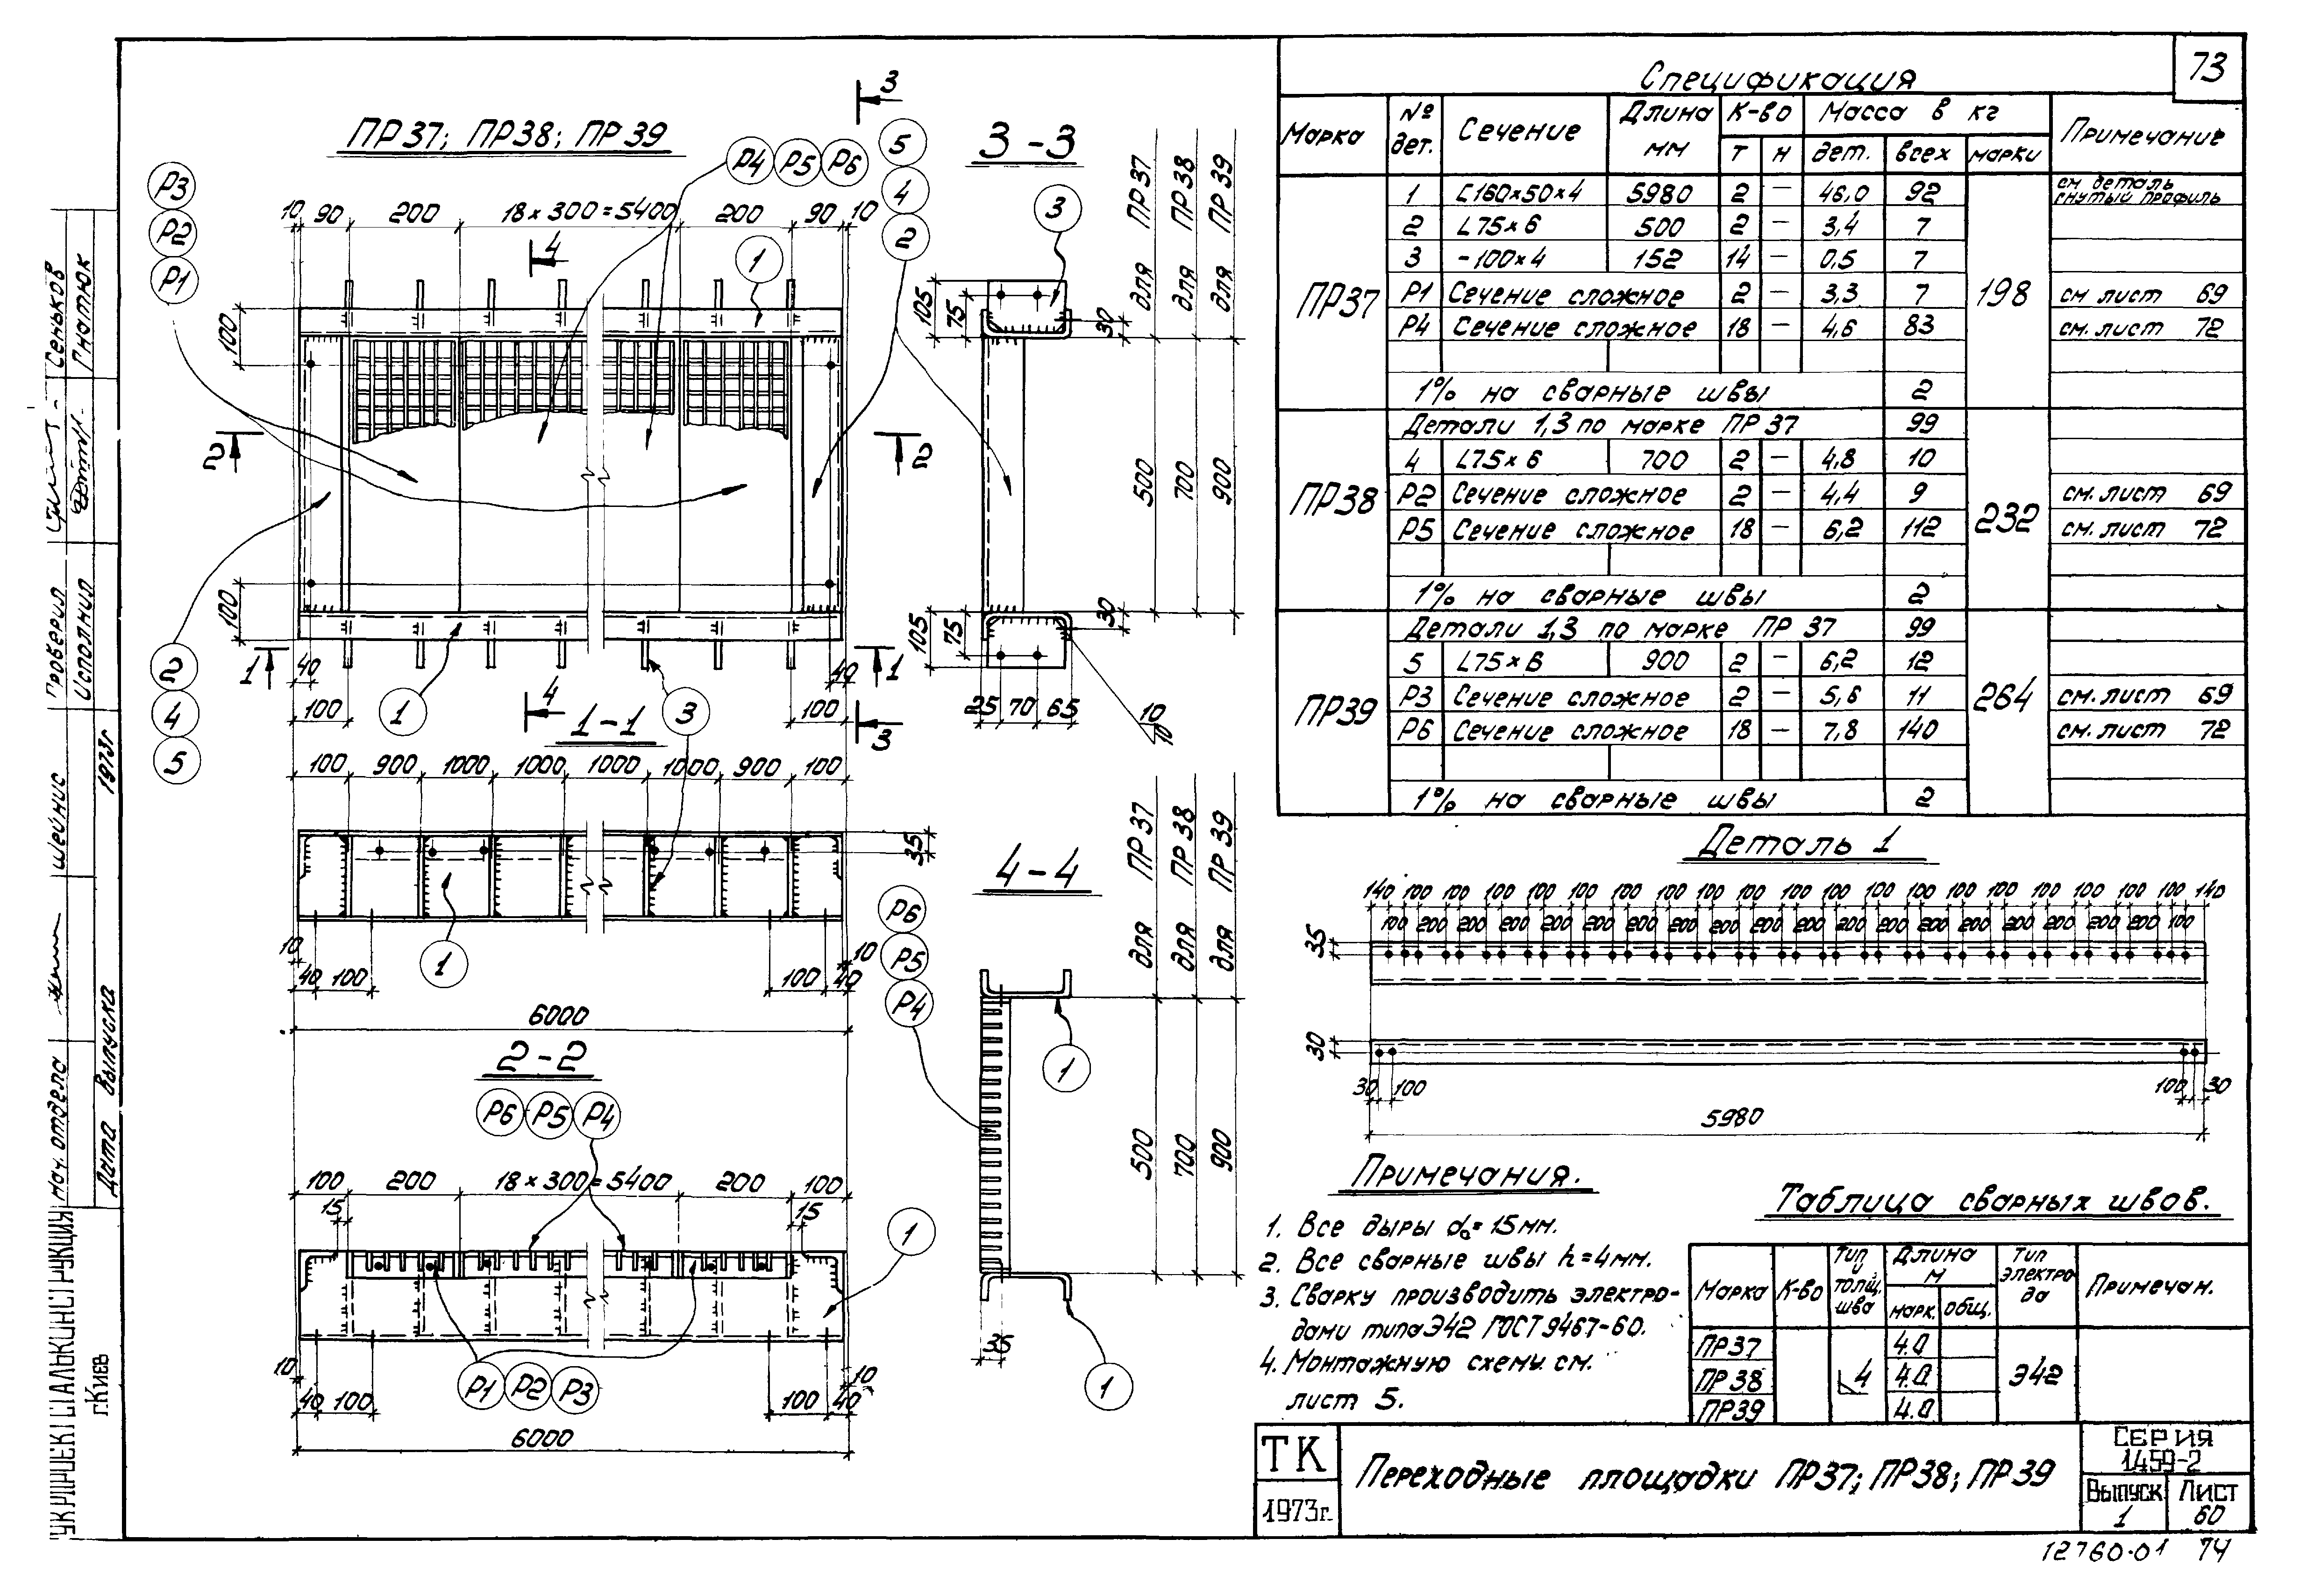 73
ПР37; ПР38; ПР39
Р3
Р2
Р1
Р4 Р5 Р6
5
4
2
3
10 90 200 18×300=5400 200 90 10
4
1
100
2 2
100
1 1
40 40
100 100
2
4
5
1
4
3
3
1-1
100 900 1000 1000 1000 1000 900 100
35
1
10 10
40 100 100 40
6000
2-2
Р6 Р5 Р4
100 200 18×300=5400 200 100
15 15
1
10 10
40 100 100 40
Р1 Р2 Р3
6000
3-3
3
для ПР37
для ПР38
для ПР39
105 75 30
500
700
900
105 75 30
25 70 65
10
10
4-4
для ПР37
для ПР38
для ПР39
Р6
Р5
Р4
1
500
700
900
35
1
Спецификация
Марка № дет. Сечение Длина мм К-во Масса в кг Примечание
т н дет. всех марки
ПР37 1 [160×50×4 5980 2 – 46,0 92 198 см деталь гнутый профиль
2 L75×6 500 2 – 3,4 7
3 -100×4 152 14 – 0,5 7
Р1 Сечение сложное 2 – 3,3 7 см лист 69
Р4 Сечение сложное 18 – 4,6 83 см. лист 72
1% на сварные швы 2
ПР38 Детали 1,3 по марке ПР 37 99 232
4 L75×6 700 2 – 4,8 10
Р2 Сечение сложное 2 – 4,4 9 см. лист 69
Р5 Сечение сложное 18 – 6,2 112 см. лист 72
1% на сварные швы 2
ПР39 Детали 1,3 по марке ПР 37 99 264
5 L75×6 900 2 – 6,2 12
Р3 Сечение сложное 2 – 5,6 11 см. лист 69
Р6 Сечение сложное 18 – 7,8 140 см. лист 72
1% на сварные швы 2
Деталь 1
140 100 100 100 100 100 100 100 100 100 100 100 100 100 100 100 100 100 100 100 140
100 200 200 200 200 200 200 200 200 200 200 200 200 200 200 200 200 200 100
35
30
30 100 100 30
5980
Примечания.
1. Все дыры d₀=15мм.
2. Все сварные швы h=4мм.
3. Сварку производить электро-
дами типа Э42 ГОСТ 9467-60.
4. Монтажную схему см.
лист 5.
Таблица сварных швов.
Марка К-во Тип и толщ. шва Длина м Тип электро да Примечан.
марк. общ.
ПР37 4.0
ПР38 4 4.0 Э42
ПР39 4.0
ТК
1973г.
Переходные площадки ПР37; ПР38; ПР39
СЕРИЯ
1.459-2
Выпуск
1
Лист
60
12760-01 74
Сеньков
Гнатюк
Проверил
Исполнил
1973г
Шейнис
Нач. отдела
Дата выпуска
УКРПРОЕКТСТАЛЬКОНСТРУКЦИЯ
г.Киев